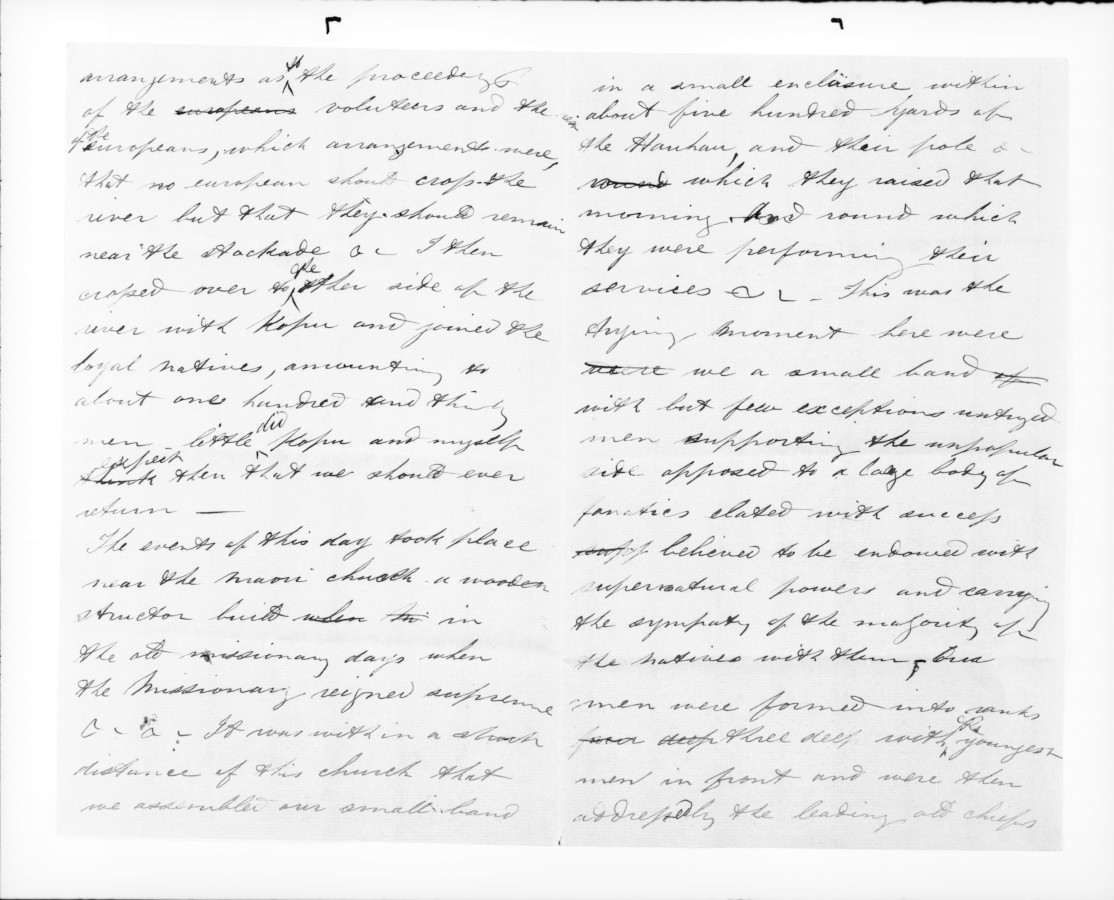 arrangements as to the proceedings
of the europeans voluteers and the
of the europeans, which arrangements were,
that no european shoud cross the
river but that they should remain
near the stockade &c I then
crossed over to the other side of the
river with Kopu and joined the
loyal natives, amounting to
about one hundred and thirty
men _ little did Kopu and myself
think expect then that we should ever
return —
The events of this day took place
near the maori church a wooden
structor built when the in
the old missionary days when
the Missionary reigned supreme
&c &c It was within a short
distance of this church that
we assembled our small band
in a small enclosure within
about five hundred yards of
the Hauhau, and their pole &c
round which they raised that
morning and round which
they were performing their
services &c _ This was the
trying moment here were
were we a small band of
with but few exceptions untryed
men supporting the unpopular
side opposed to a large body of
fanatics elated with success
supp believed to be endowed with
supernatural powers and carrying
the sympaty of the majority of
the natives with them, Our
men were formed into ranks
four deep three deep with the youngest
men in front and were then
addressed by the leading old chiefs